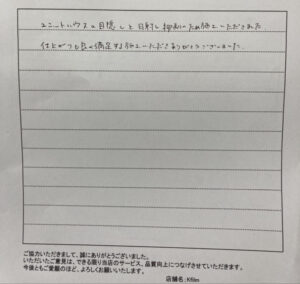 ユニットハウスの目隠しと日射し抑制のため施工いただきました
仕上がりも良く満足する施工いただきありがとうございました.
ご協力いただきまして、誠にありがとうございました。
いただいたご意見は、できる限り当店のサービス、品質向上につなげさせていただきます。
今後ともご愛顧のほど、よろしくお願いいたします。
店舗名：Kfilm